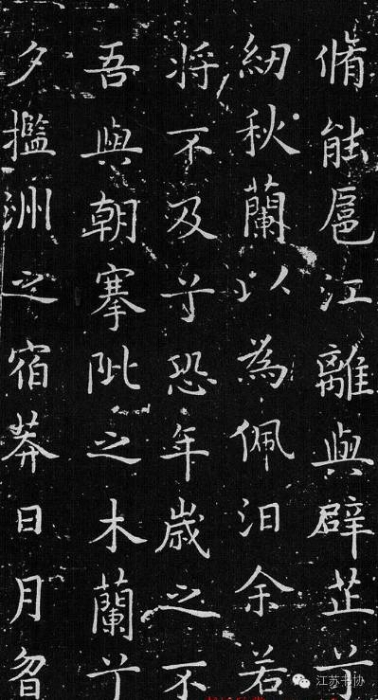 脩能扈江離與辟芷兮
紉秋蘭以為佩汩余若
將不及兮恐年歲之不
吾與朝搴阰之木蘭兮
夕㩜洲之宿莽日月曶
江苏书协